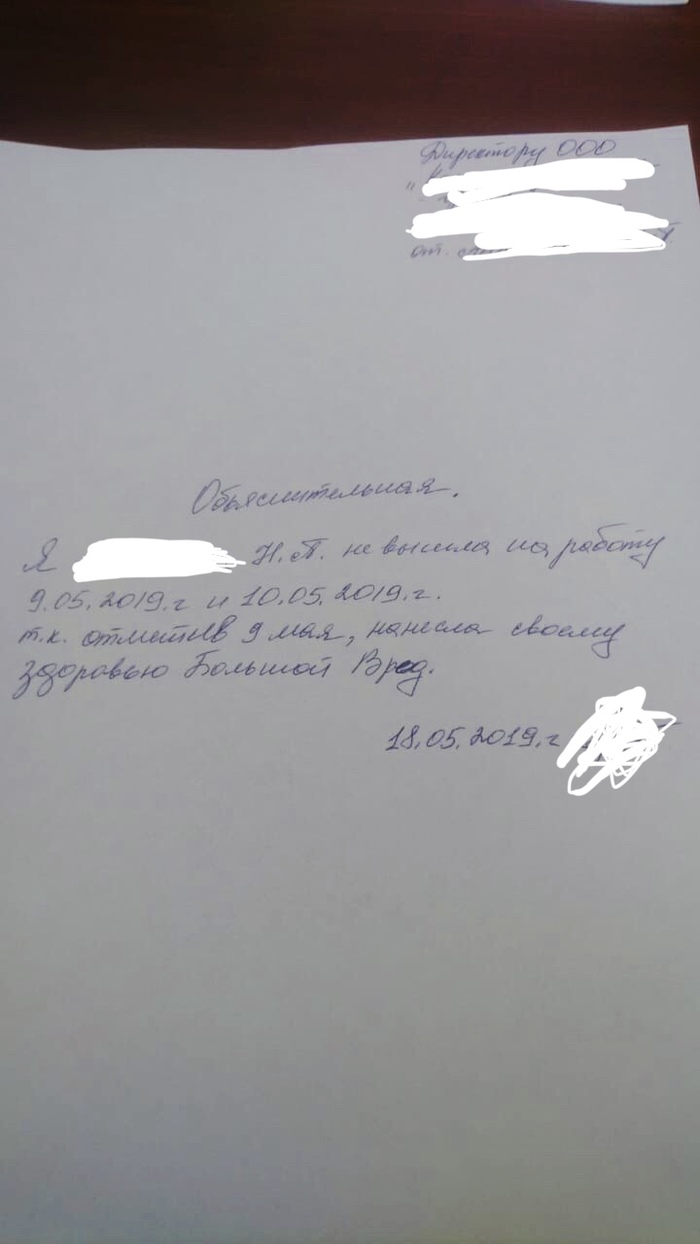 Директору ООО
"
от.
Объяснительная.
Я Н.П. не вышла на работу
9.05.2019.г и 10.05.2019.г.
т.к. отметив 9 мая, нанесла своему
здоровью Большой Вред.
18.05.2019.г